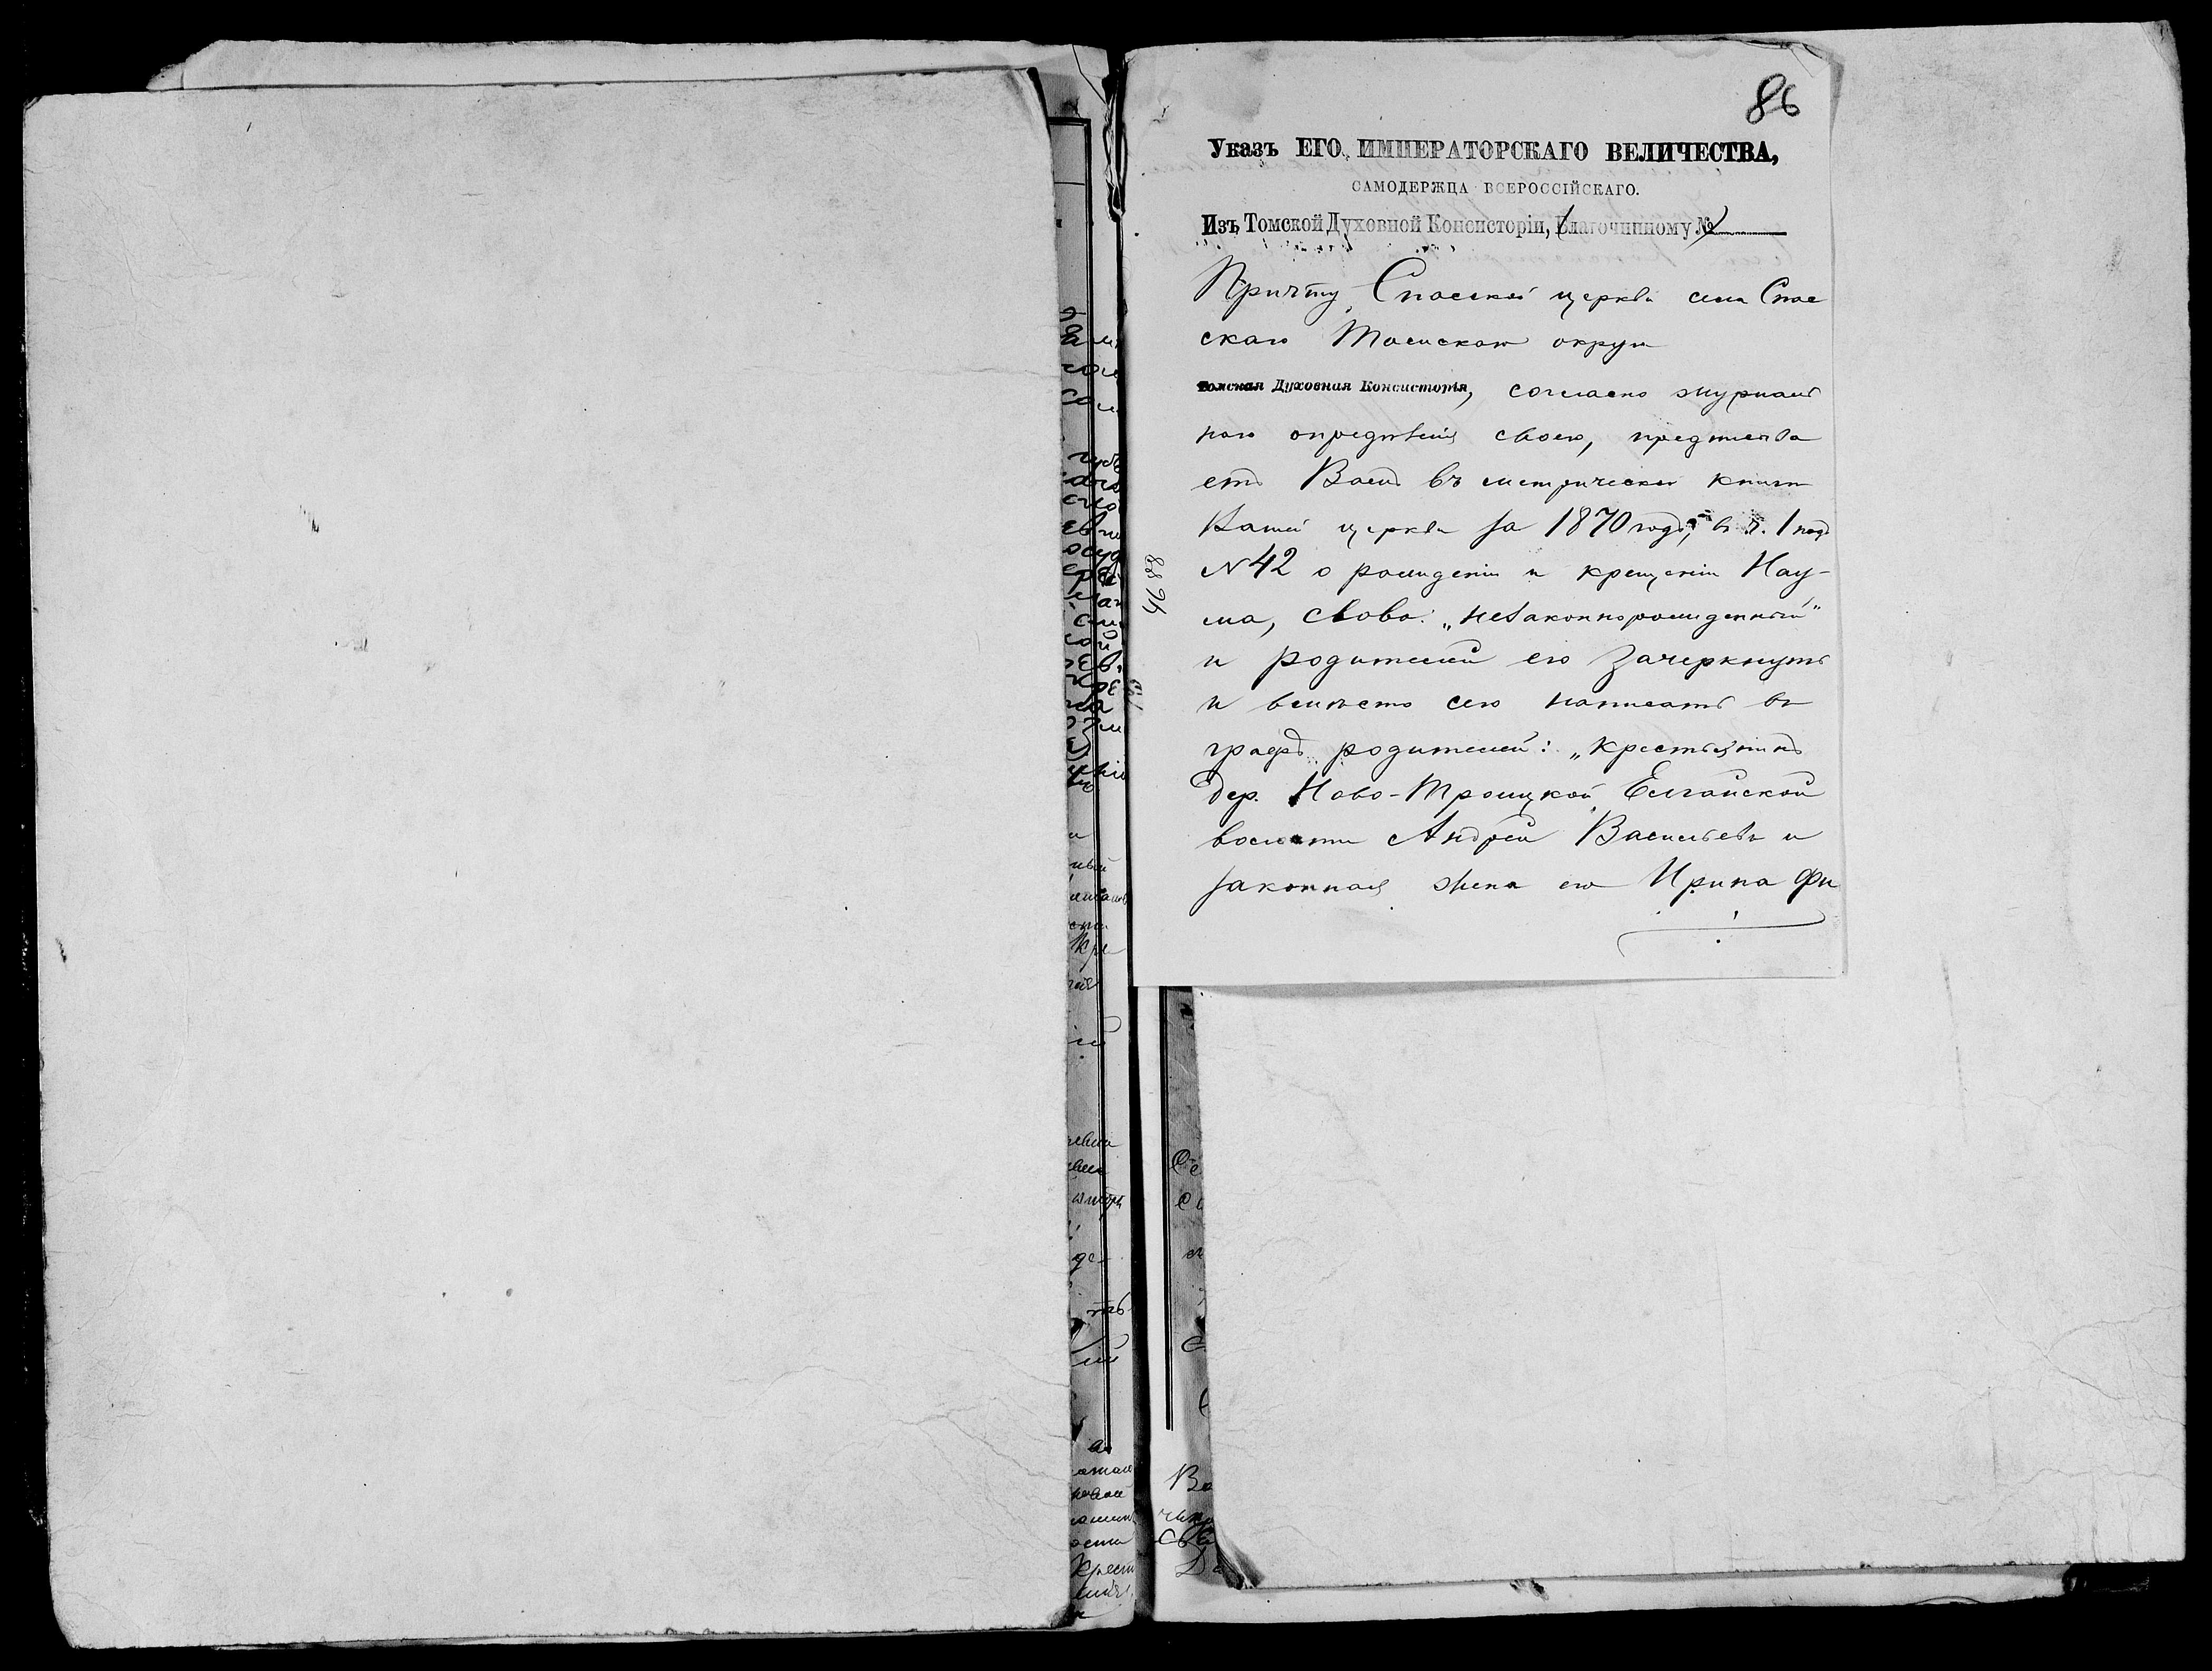 86
Указъ ЕГО ИМПЕРАТОРСКАГО ВЕЛИЧЕСТВА,
САМОДЕРЖЦА ВСЕРОССІЙСКАГО.
Изъ Томской Духовной Консисторіи, Благочинному №
Причту Спасской церкви села Спас
скаго Томскаго округа
Томская Духовная Консисторія, согласно журналь
наго опредѣленія своего, предписыва
етъ Вамъ въ метрической книгѣ
Вашей церкви за 1870 годъ, въ ч. 1 подъ
№ 42 о рожденіи и крещеніи Нау-
ма, слова: „незаконнорожденный"
и родителей его зачеркнуть
и вмѣсто сего написать въ
графѣ родителей: „крестьянинъ
дер. Ново-Троицкой Елгайской
волости Андрей Васильевъ и
законная жена его Ирина Фи
4688